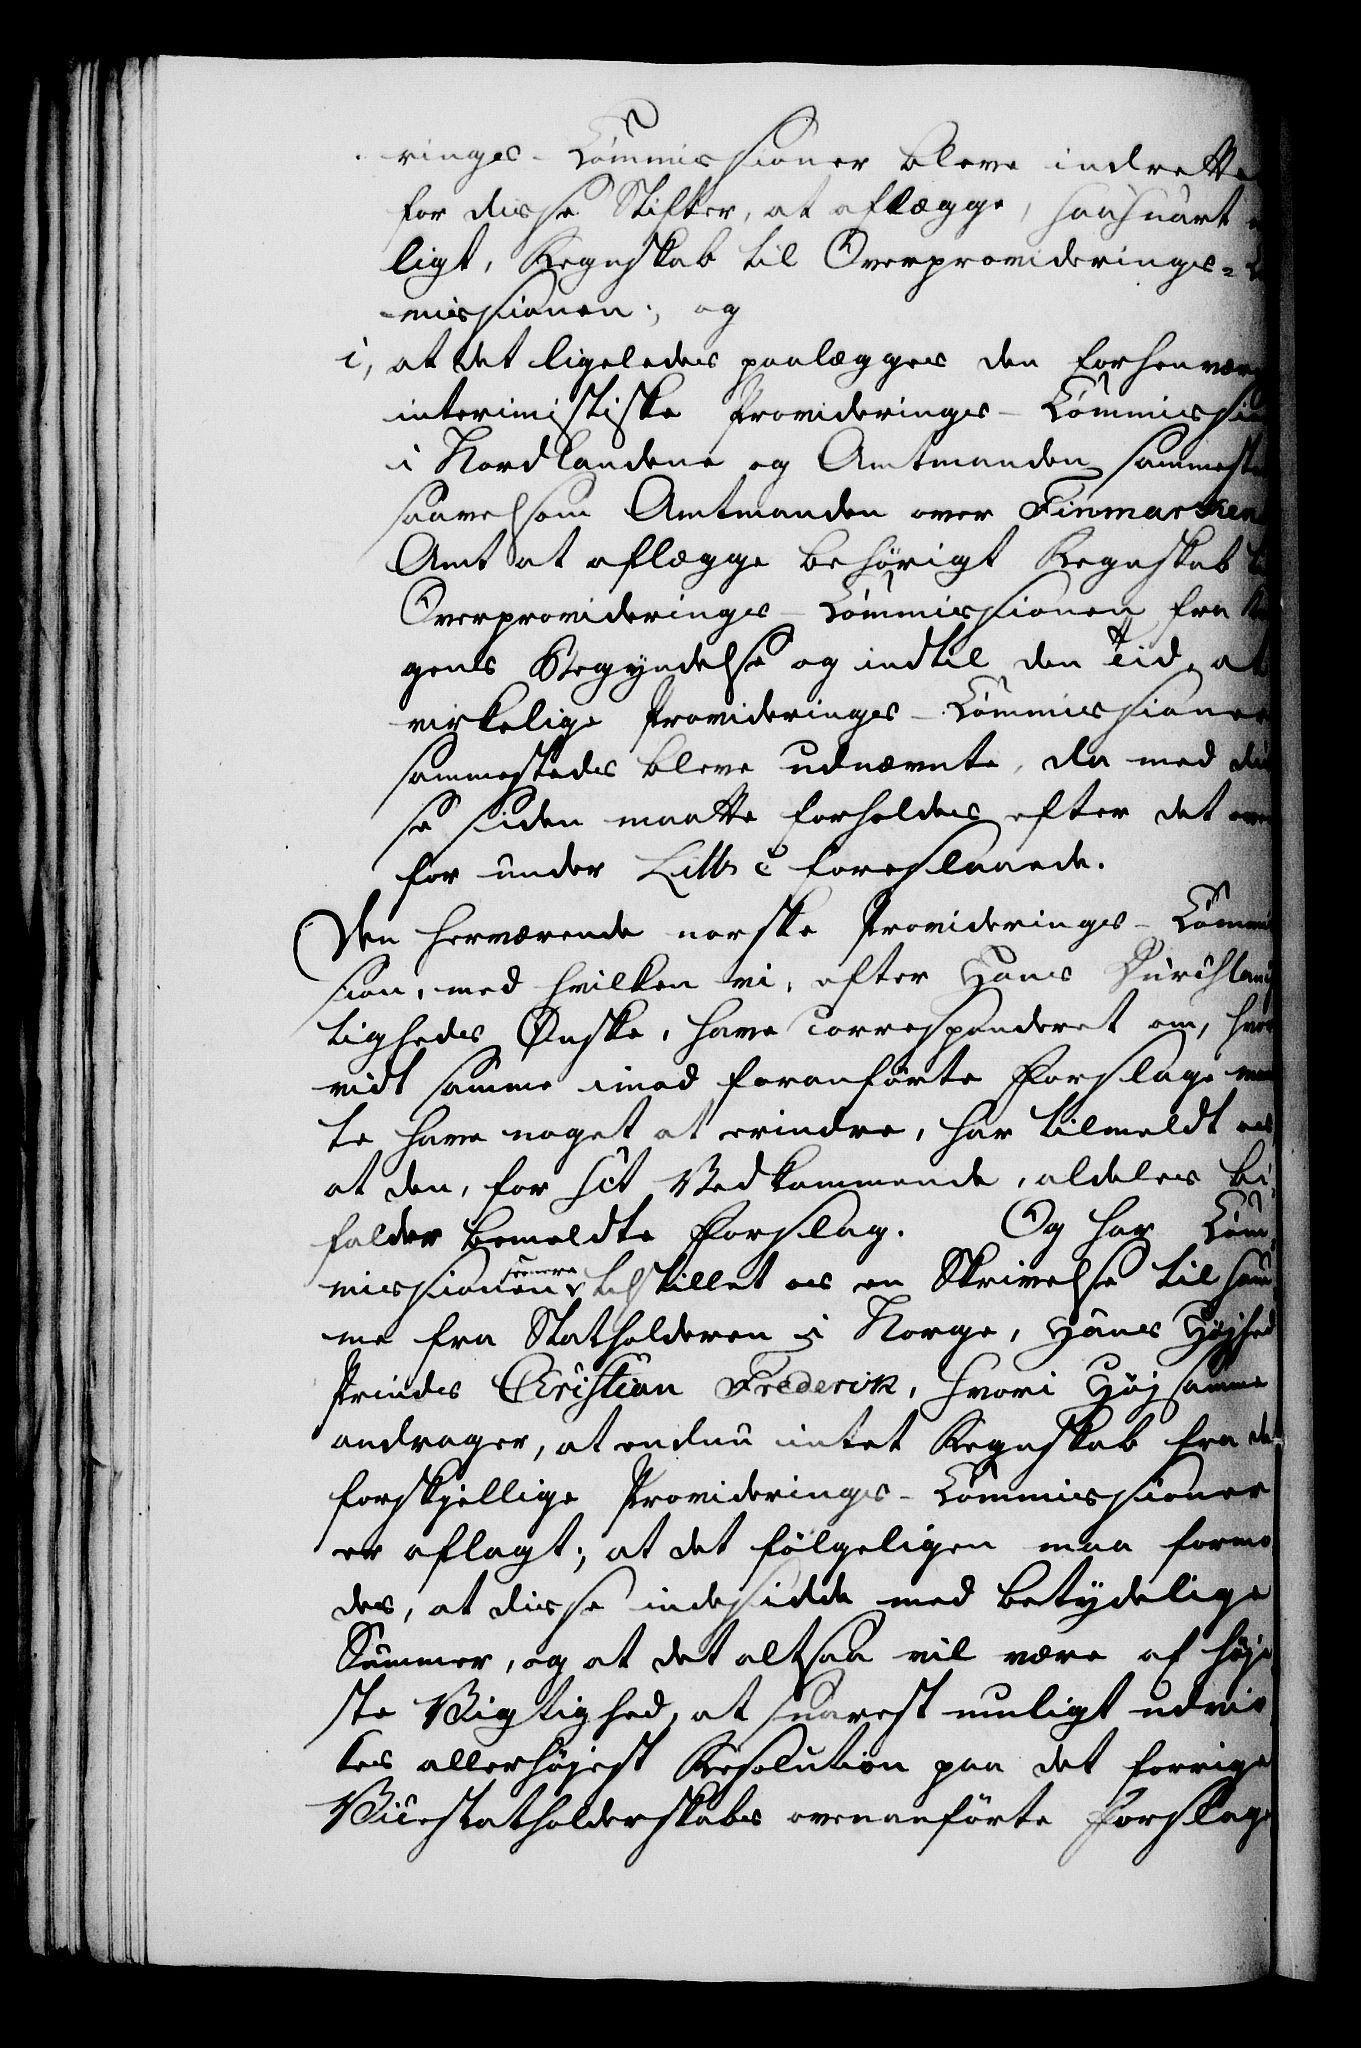 ringes-Commissioner bleve indrette
for disse Stifter, at aflægge, saasnart
ligt, Regnskab til Overproviderings-
missionen; og
i, at det ligeledes paalægges den forhenvær
interimistiske Provideringes-Commissi
i Nordlandene og Amtmanden sammeste
saavelsom Amtmanden over Finmarkens
Amt at aflægge behörigt Regnskab
Overprovideringes-Commissionen fra
gens Begyndelse og indtil den Tid, at
virkelige Provideringes-Commissioner
sammestedes bleve udnævnte, da med dis
se siden maatte forholdes efter det oven
for under Littr c foreslaaede.
Den herværende norske Provideringes-Commis
sion, med hvilken vi, efter Hans Durchlauch
tigheds Ønske, have correspenderet om, hvor
vidt samme imod foranførte Forslage maa
te have noget at erindre, har tilmeldt os,
at den, for sit Vedkommende, aldeles bi
falder bemeldte Forslag. Og har Com
missionen senere tilstillet os en Skrivelse til sam
me fra Statholderen i Norge, Hans Højhed
Prinds Christian Frederik, hvori Højsamme
andrager, at endnu intet Regnskab fra de
forskjellige Provideringes-Commissioner
er aflagt; at det følgeligen maa formo
des, at disse indesidde med betydelige
Summer, og at det altsaa vil være af høje
ste Vigtighed, at snarest muligt udvir
kes allerhøjest Resolution paa det forrige
Vicestatholderskabs ovenanførte Forslage